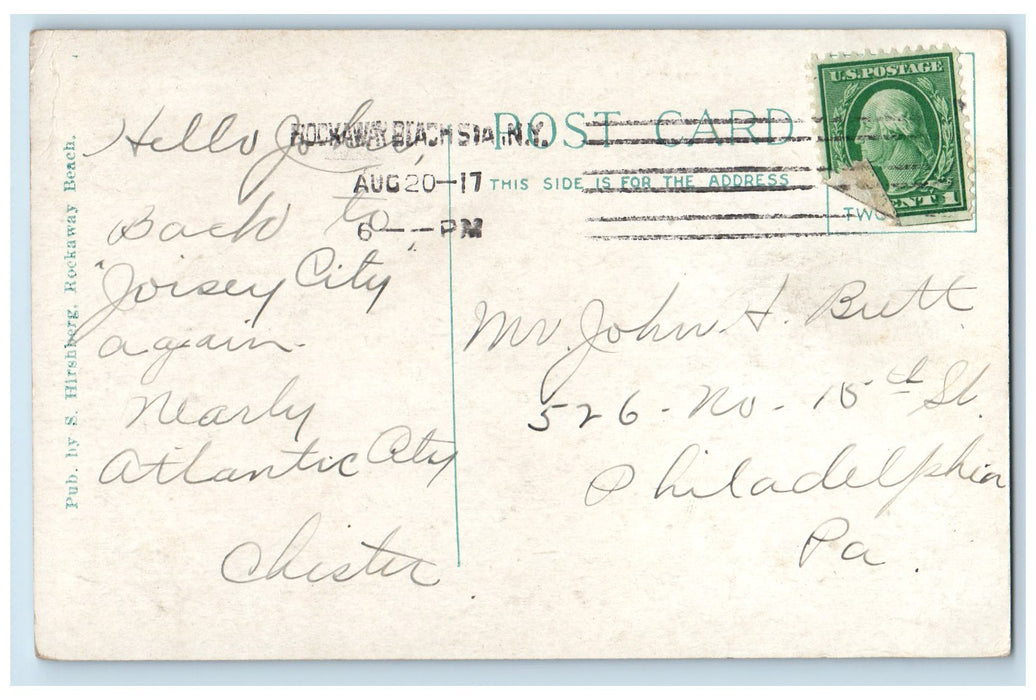 Pub. by S. Hirshberg, Rockaway Beach.
POST CARD
THIS SIDE IS FOR THE ADDRESS
ROCKAWAY BEACH STA. N.Y.
AUG 20-17
6 - PM
U.S. POSTAGE
CENT 1
TWO
Hello John,
Back to
"Joisey City"
again.
Nearly
Atlantic City
Chester
Mr. John H. Butt
526 - No - 15th St.
Philadelphia
Pa.